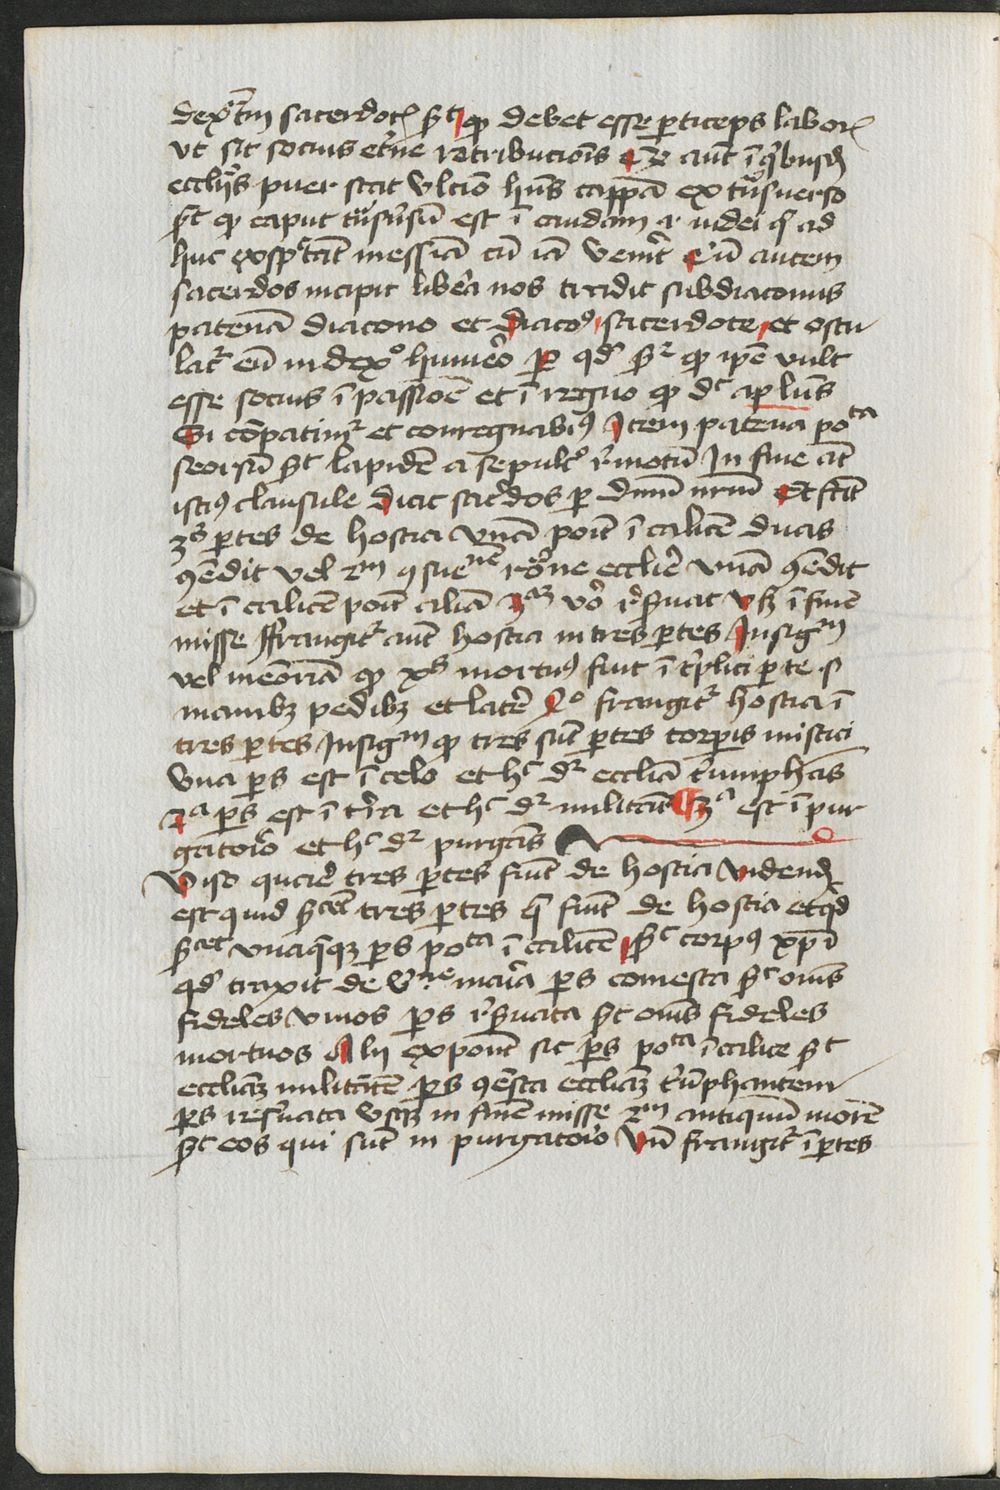 dext̄m sacerdoc͛ s͛t q̶ debet esse ꝑticeps labor͛
vt sit socius et͛ne retribucio̅is Et aut̅ i̅ q͛busd͛
eccl̅ijs puer stat vltio͛ hn̅s cappa̅ ex tͣsuerso
s͛t q̶ caput tͣsu͛su̅ est i̅ caudam et iudei q̵ ad
huc exspc̅ta̅t messia̅ cu̅ ia̅ vener͛t Cu̅ autem
sacerdos incipit libe͛a nos tradit subdiaconus
patena̅ diacono et diacoꝰ sacerdote et oscu
lat͛ eu̅ in dexº hume͛o ꝑ qd͛ s͛ͬ q̶ ip̅e vult
esse socius i̅ passio̅e et i̅ regno q̶ dͨ apl̅us
Si co̅patimͬ et conregnabi̅ꝰ Item patena poᵗᵃ
seorsu̅ s͛t lapide̅ a sepulcº r͛motu̅ In fine at̅
istiꝰ clausule dicit sac͛dos ꝑ dn̅m nr̅m Et fa̅t
3ˢ ꝑtes de hostia vna̅ poi̅t i̅ calice̅ duas
ꝯedit vel 2ᵐ ꝯsueⁿᵉ ro̅ne eccl̅ie vna̅ ꝯedit
et i̅ calice̅ poi̅t alia̅ 3ᵃᵐ vo͛ r͛s͛uat vsqꝫ i̅ fine̅
misse Frangit͛ aut̅ hostia in tres ꝑtes Insigᵐ
vel me̅oria̅ q̶ xp̅s mortuꝰ fuit i̅ t͛plici ꝑte s
manibꝫ pedibꝫ et late͛ 2º frangit͛ hostia i̅
tres ꝑtes Insigᵐ q̶ tres su̅t ꝑtes corꝑis mistici
vna ꝑs est i̅ celo et hͨ dͬ eccl̅ia t͛umpha̅s
2ᵃ ꝑs est i̅ t͛ra et hͨ dͬ milita̅t 3ᵃ est i̅ pur
gatorio et hͨ dͬ purga̅s
Viso qua͛e tres ꝑtes fiu̅t de hostia vidend͛
est quid s͛ca̅t tres ꝑtes q̵ fiu̅t de hostia et q͛d
s͛cat vnaq̵qꝫ ꝑs poᵗᵃ i̅ calice̅ s͛ͨ corpꝰ xp̅i
qd͛ traxit de v͛ⁿᵉ ma͛ia ꝑs comesta s͛ͨ oi̅s
fideles viuos ꝑs r͛s͛uata s͛t om̅s fideles
mortuos Alij expoi̅t sic ꝑs poᵗᵃ i̅ calice s͛t
eccl̅iaꝫ milita̅te̅ ꝑs ꝯe̅sta eccl̅iaꝫ t͛u̅phantem
ꝑs res͛uata vsqꝫ in fine̅ misse 2ᵐ antiquu̅ more̅
s͛t eos qui su̅t in purgatorio Vn̅ frangit͛ i̅ ꝑtes